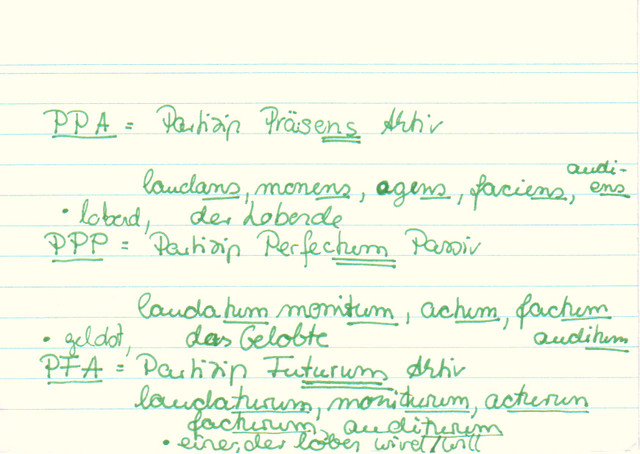 PPA = Partizip Präsens Aktiv
laudans, monens, agens, faciens, audi-
ens
• lobend, der Lobende
PPP = Partizip Perfectum Passiv
laudatum monitum, actum, factum
auditum
• gelobt, das Gelobte
PFA = Partizip Futurum Aktiv
laudaturum, moniturum, acturum
facturum, auditurum
• einer, der loben wird/will